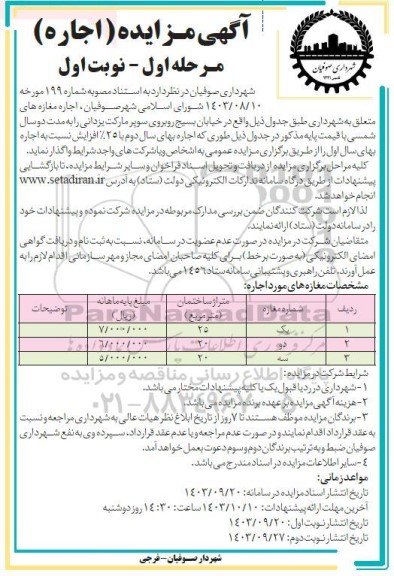 آگهی مـزایده (اجاره)
مـرحله اول - نوبت اول
شهرداری صوفیان
شهرداری صوفیان در نظر دارد به استناد مصوبه شماره ۱۹۹ مورخه
۱۴۰۳/۰۸/۱۰ شورای اسلامی شهر صوفیان، اجاره مغازه های
متعلق به شهرداری طبق جدول ذیل واقع در خیابان بسیج روبروی سوپر مارکت یزدانی را به مدت دو سال
شمسی با قیمت پایه مذکور در جدول ذیل طوری که اجاره بهای سال دوم با ۲۵٪ افزایش نسبت به اجاره
بهای سال اول را از طریق برگزاری مزایده عمومی به اشخاص و یا شرکت های واجد شرایط واگذار نماید.
کلیه مراحل برگزاری مزایده از دریافت و تحویل اسناد فراخوان و سایر شرایط مزایده، تا بازگشایی
پیشنهادات از طریق درگاه سامانه تدارکات الکترونیکی دولت (ستاد) به آدرس www.setadiran.ir
انجام خواهد شد.
لذا لازم است شرکت کنندگان ضمن بررسی مدارک مربوطه در مزایده شرکت نموده و پیشنهادات خود
را در سامانه دولت (ستاد) ارائه نمایند.
متقاضیان شرکت در مزایده در صورت عدم عضویت در سامانه، نسبت به ثبت نام و دریافت گواهی
امضای الکترونیکی (به صورت برخط) برای کلیه صاحبان امضای مجاز و مهر سازمانی اقدام لازم را به
عمل آورند. تلفن راهبری و پشتیبانی سامانه ستاد ۱۴۵۶ می باشد.
مشخصات مغازه های مورد اجاره:
ردیف شماره مغازه متراژ ساختمان (مترمربع) مبلغ پایه ماهانه (ریال) توضیحات
۱ یک ۲۵ ۷/۰۰۰/۰۰۰
۲ دو ۲۰ ۶/۰۰۰/۰۰۰
۳ سه ۲۰ ۵/۰۰۰/۰۰۰
شرایط شرکت در مزایده:
۱- شهرداری در رد یا قبول یک یا کلیه پیشنهادات مختار می باشد.
۲- هزینه آگهی مزایده بر عهده برنده مزایده می باشد.
۳- برندگان مزایده موظف هستند تا ۷ روز از تاریخ ابلاغ نظر هیات عالی به شهرداری مراجعه و نسبت
به عقد قرارداد اقدام نمایند و در صورت عدم مراجعه و یا عدم عقد قرارداد، سپرده وی به نفع شهرداری
صوفیان ضبط و به ترتیب برندگان دوم و سوم دعوت بعمل خواهد آمد.
۴- سایر اطلاعات مزایده در اسناد مندرج می باشد.
مواعد زمانی:
تاریخ انتشار اسناد مزایده در سامانه: ۱۴۰۳/۰۹/۲۰
آخرین مهلت ارائه پیشنهادات: ۱۴۰۳/۱۰/۱۰ ساعت: ۱۴:۳۰ روز دوشنبه
تاریخ انتشار نوبت اول: ۱۴۰۳/۰۹/۲۰
تاریخ انتشار نوبت دوم: ۱۴۰۳/۰۹/۲۷
شهردار صوفیان - فرجی